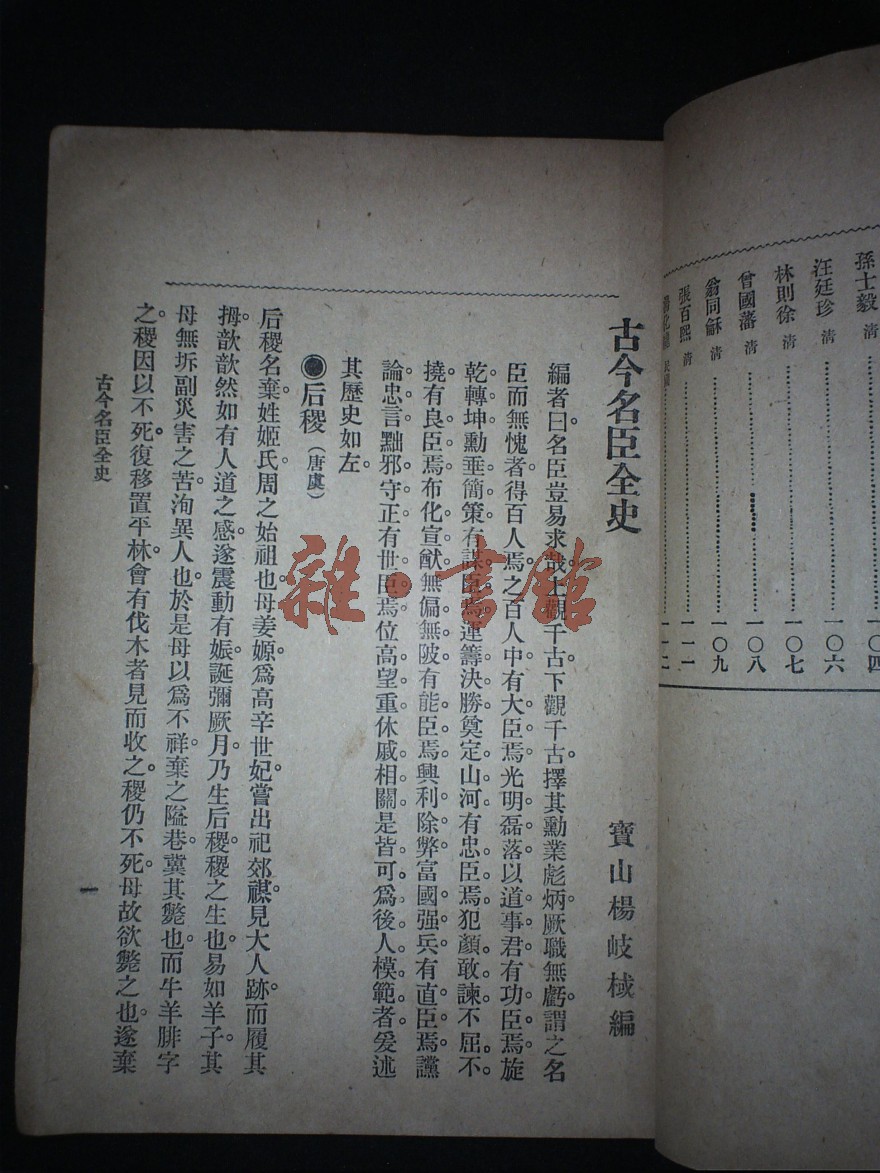 孫士毅 清 一〇四
汪廷珍 清 一〇六
林則徐 清 一〇七
曾國藩 清 一〇八
翁同龢 清 一〇九
張百熙 清 一一一
民國 一一二
古今名臣全史
寶山楊岐棫編
編者曰名臣豈易求哉上觀千古下觀千古擇其勳業彪炳厥職無虧謂之名
臣而無愧者得百人焉之百人中有大臣焉光明磊落以道事君有功臣焉旋
乾轉坤勳垂簡策有謀臣焉運籌決勝奠定山河有忠臣焉犯顏敢諫不屈不
撓有良臣焉布化宣猷無偏無陂有能臣焉興利除弊富國强兵有直臣焉讜
論忠言黜邪守正有世臣焉位高望重休戚相關是皆可爲後人模範者爰述
其歷史如左
●后稷(唐虞)
后稷名棄姓姬氏周之始祖也母姜嫄爲高辛世妃嘗出祀郊禖見大人跡而履其
拇歆歆然如有人道之感遂震動有娠誕彌厥月乃生后稷稷之生也易如羊子其
母無坼副災害之苦洵異人也於是母以爲不祥棄之隘巷冀其斃也而牛羊腓字
之稷因以不死復移置平林會有伐木者見而收之稷仍不死母故欲斃之也遂棄
古今名臣全史
一
雜·書館